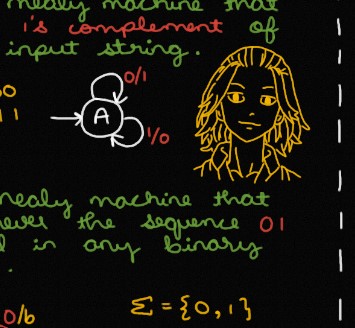 mealy machine that
1's complement of
input string.
0/1
A
1/0
mealy machine that
the sequence 01
in any binary
0/b
Σ = {0,1}